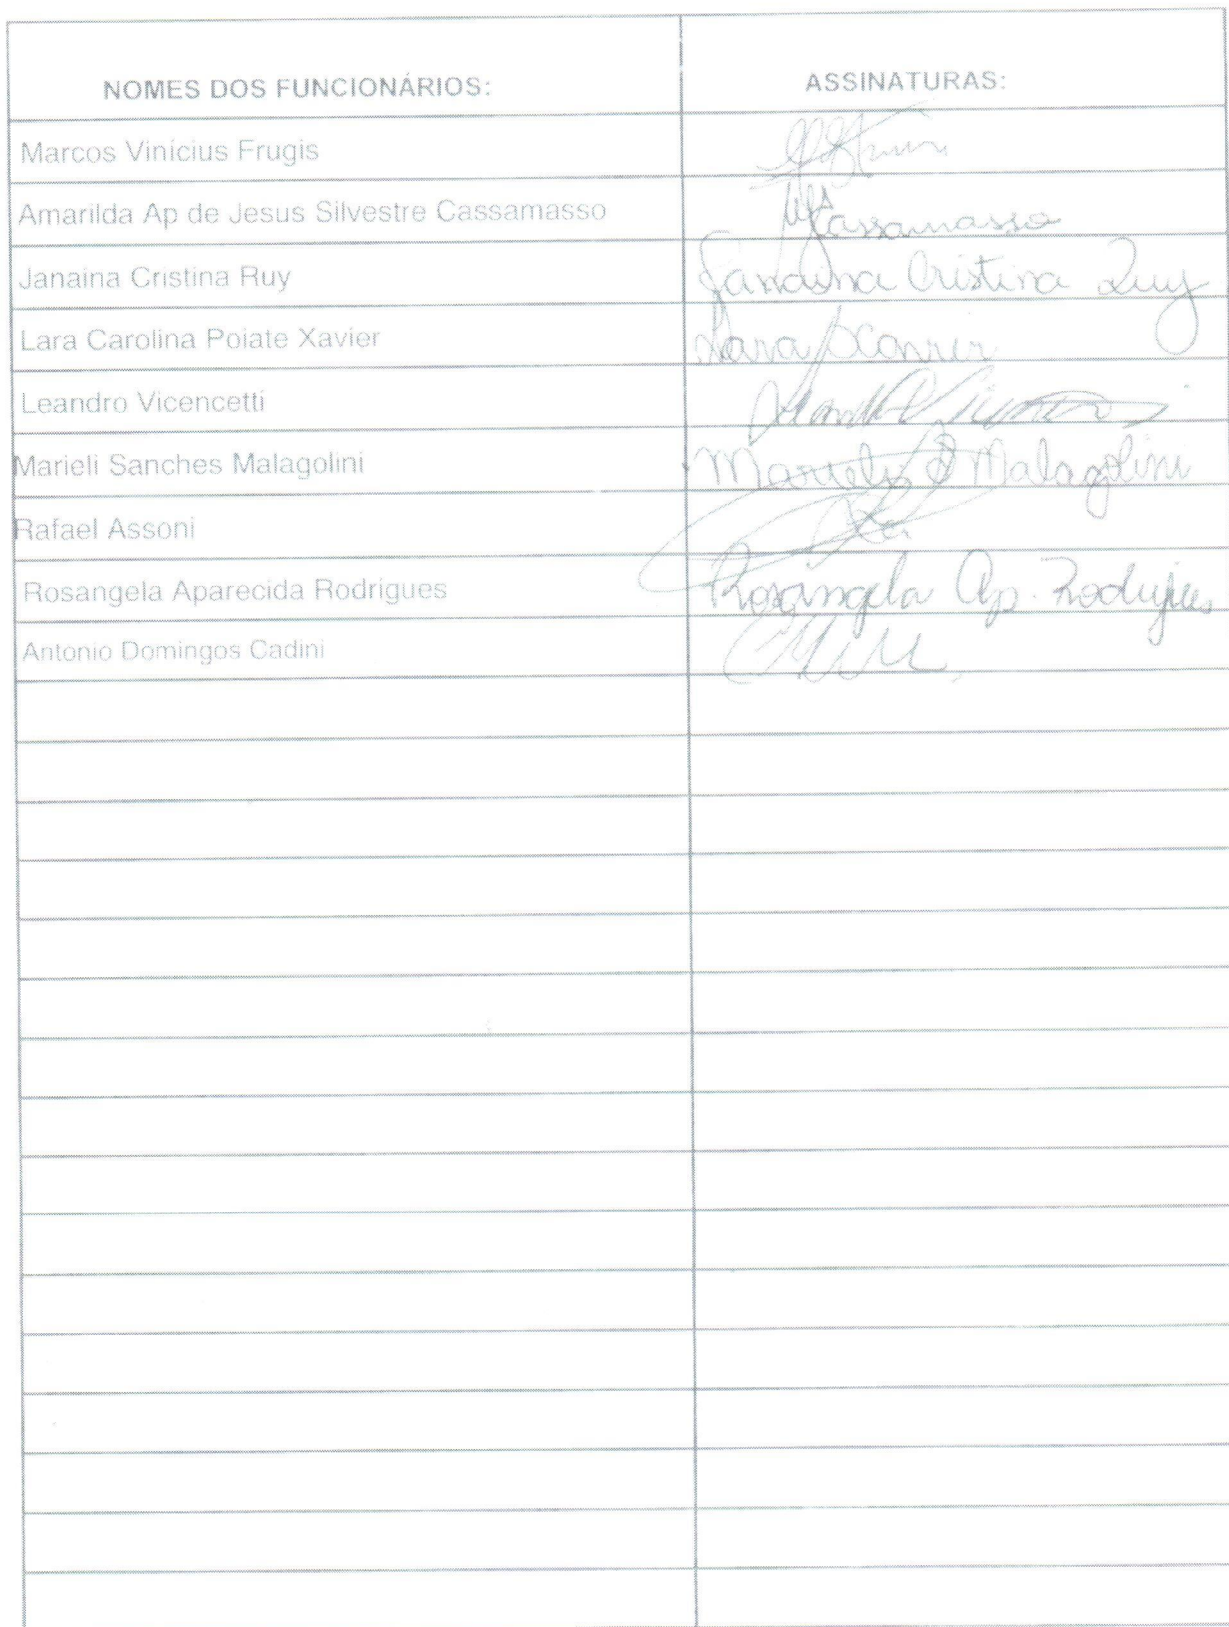 NOMES DOS FUNCIONÁRIOS: ASSINATURAS:
Marcos Vinicius Frugis
Amarilda Ap de Jesus Silvestre Cassamasso Cassamasso
Janaina Cristina Ruy Janaina Cristina Ruy
Lara Carolina Poiate Xavier Lara Xavier
Leandro Vicencetti
Marieli Sanches Malagolini Marieli S Malagolini
Rafael Assoni
Rosangela Aparecida Rodrigues Rosangela Ap. Rodrigues
Antonio Domingos Cadini